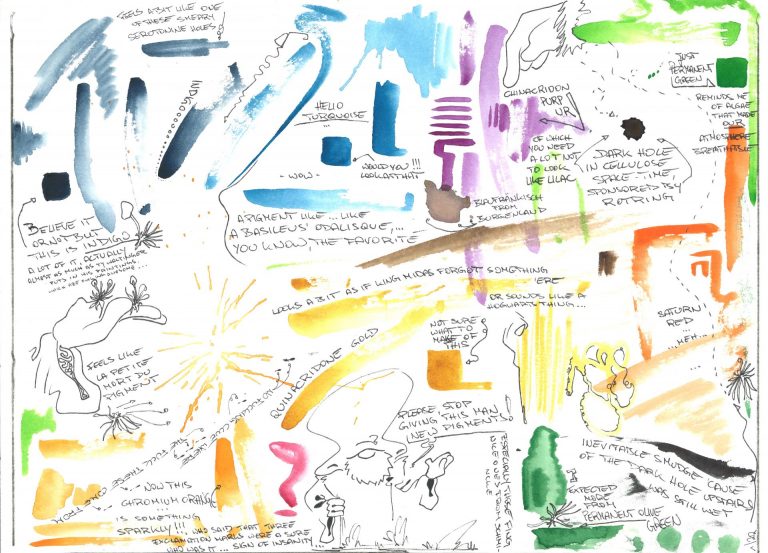 FEELS A BIT LIKE ONE
OF THESE SMEARY
SEROTONINE HOLES
INDIGO
HELLO
TURQUOISE
...
- WOW -
WOULD YOU !!!
LOOK AT THAT
CHINACRIDON
PURP
UR
OF WHICH
YOU NEED
A LOT NOT
TO LOOK
LIKE LILAC
JUST
PERMANENT
GREEN
REMINDS ME
OF ALGAE
THAT MADE
OUR
ATMOSPHERE
BREATHABLE
DARK HOLE
IN CELLULOSE
SPACE-TIME,
SPONSORED BY
ROTRING
BLAUFRÄNKISCH
FROM
BURGENLAND
A PIGMENT LIKE ... LIKE
A BASILEUS' ODALISQUE, ...
YOU KNOW, THE FAVORITE
BELIEVE IT
OR NOT BUT
THIS IS INDIGO
A LOT OF IT, ACTUALLY
ALMOST AS MUCH AS
PUTS IN HIS PAINTINGS
LOOKS A BIT AS IF KING MIDAS FORGOT SOMETHING
'ERE
OR SOUNDS LIKE A
HOGWARTS THING ...
SATURN
RED
... MEH ...
NOT SURE
WHAT TO
MAKE OF
THIS
QUINACRIDONE GOLD
FEELS LIKE
LA PETITE
MORT DU
PIGMENT
PLEASE STOP
GIVING THIS MAN
NEW PIGMENTS!
NOW THIS
CHROMIUM ORANGE
... IS SOMETHING
SPARKLY!!! ... WHO SAID THAT THREE
EXCLAMATION MARKS WERE A SURE
SIGN OF INSANITY ...
WHO WAS IT ...
EXPECTED
MORE
FROM
PERMANENT OLIVE
GREEN
INEVITABLE SMUDGE 'CAUSE
OF THE DARK HOLE UPSTAIRS
WAS STILL WET